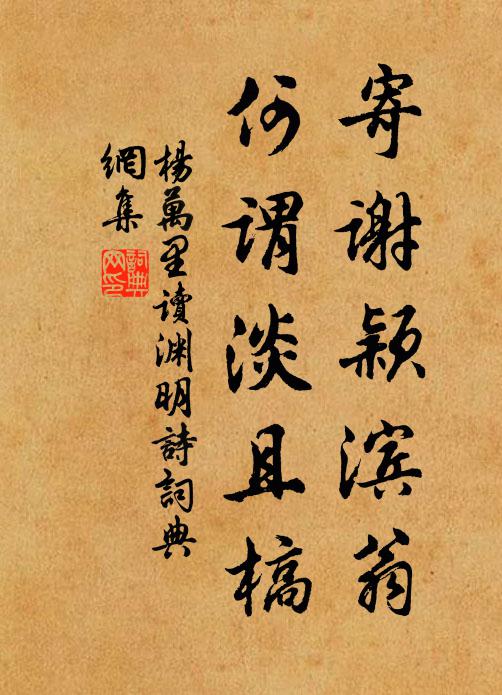 寄谢颍滨翁
何谓淡且槁
杨万里读渊明诗词典
網集
詞典
网印